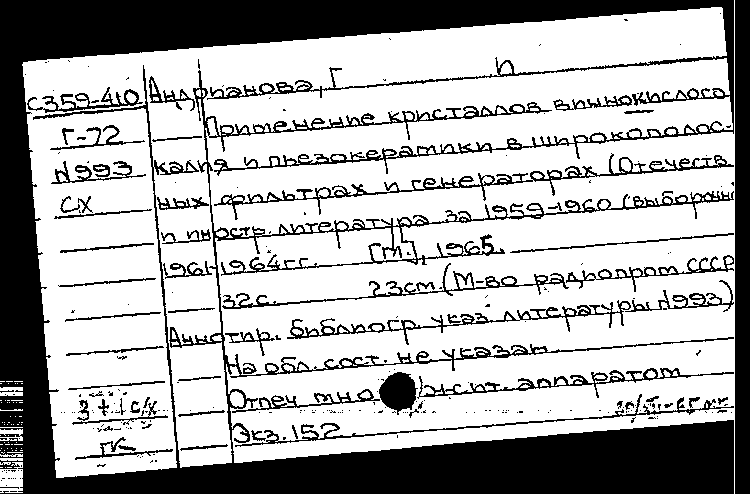 С359-410 Андрианова, Г П
Г-72 Применение кристаллов виннокислого
N993 калия и пьезокерамики в широкополос-
СХ ных фильтрах и генераторах (Отечеств
и иностр. литература за 1959-1960 (выборочно
1961-1964 гг. [М.], 1965.
32с. 23см (М-во радиопром. СССР
Аннотир. библиогр. указ. литературы N993)
На обл. сост. не указан
Отпеч. множит. аппаратом
3 + 1 с/х Экз. 152
ГК